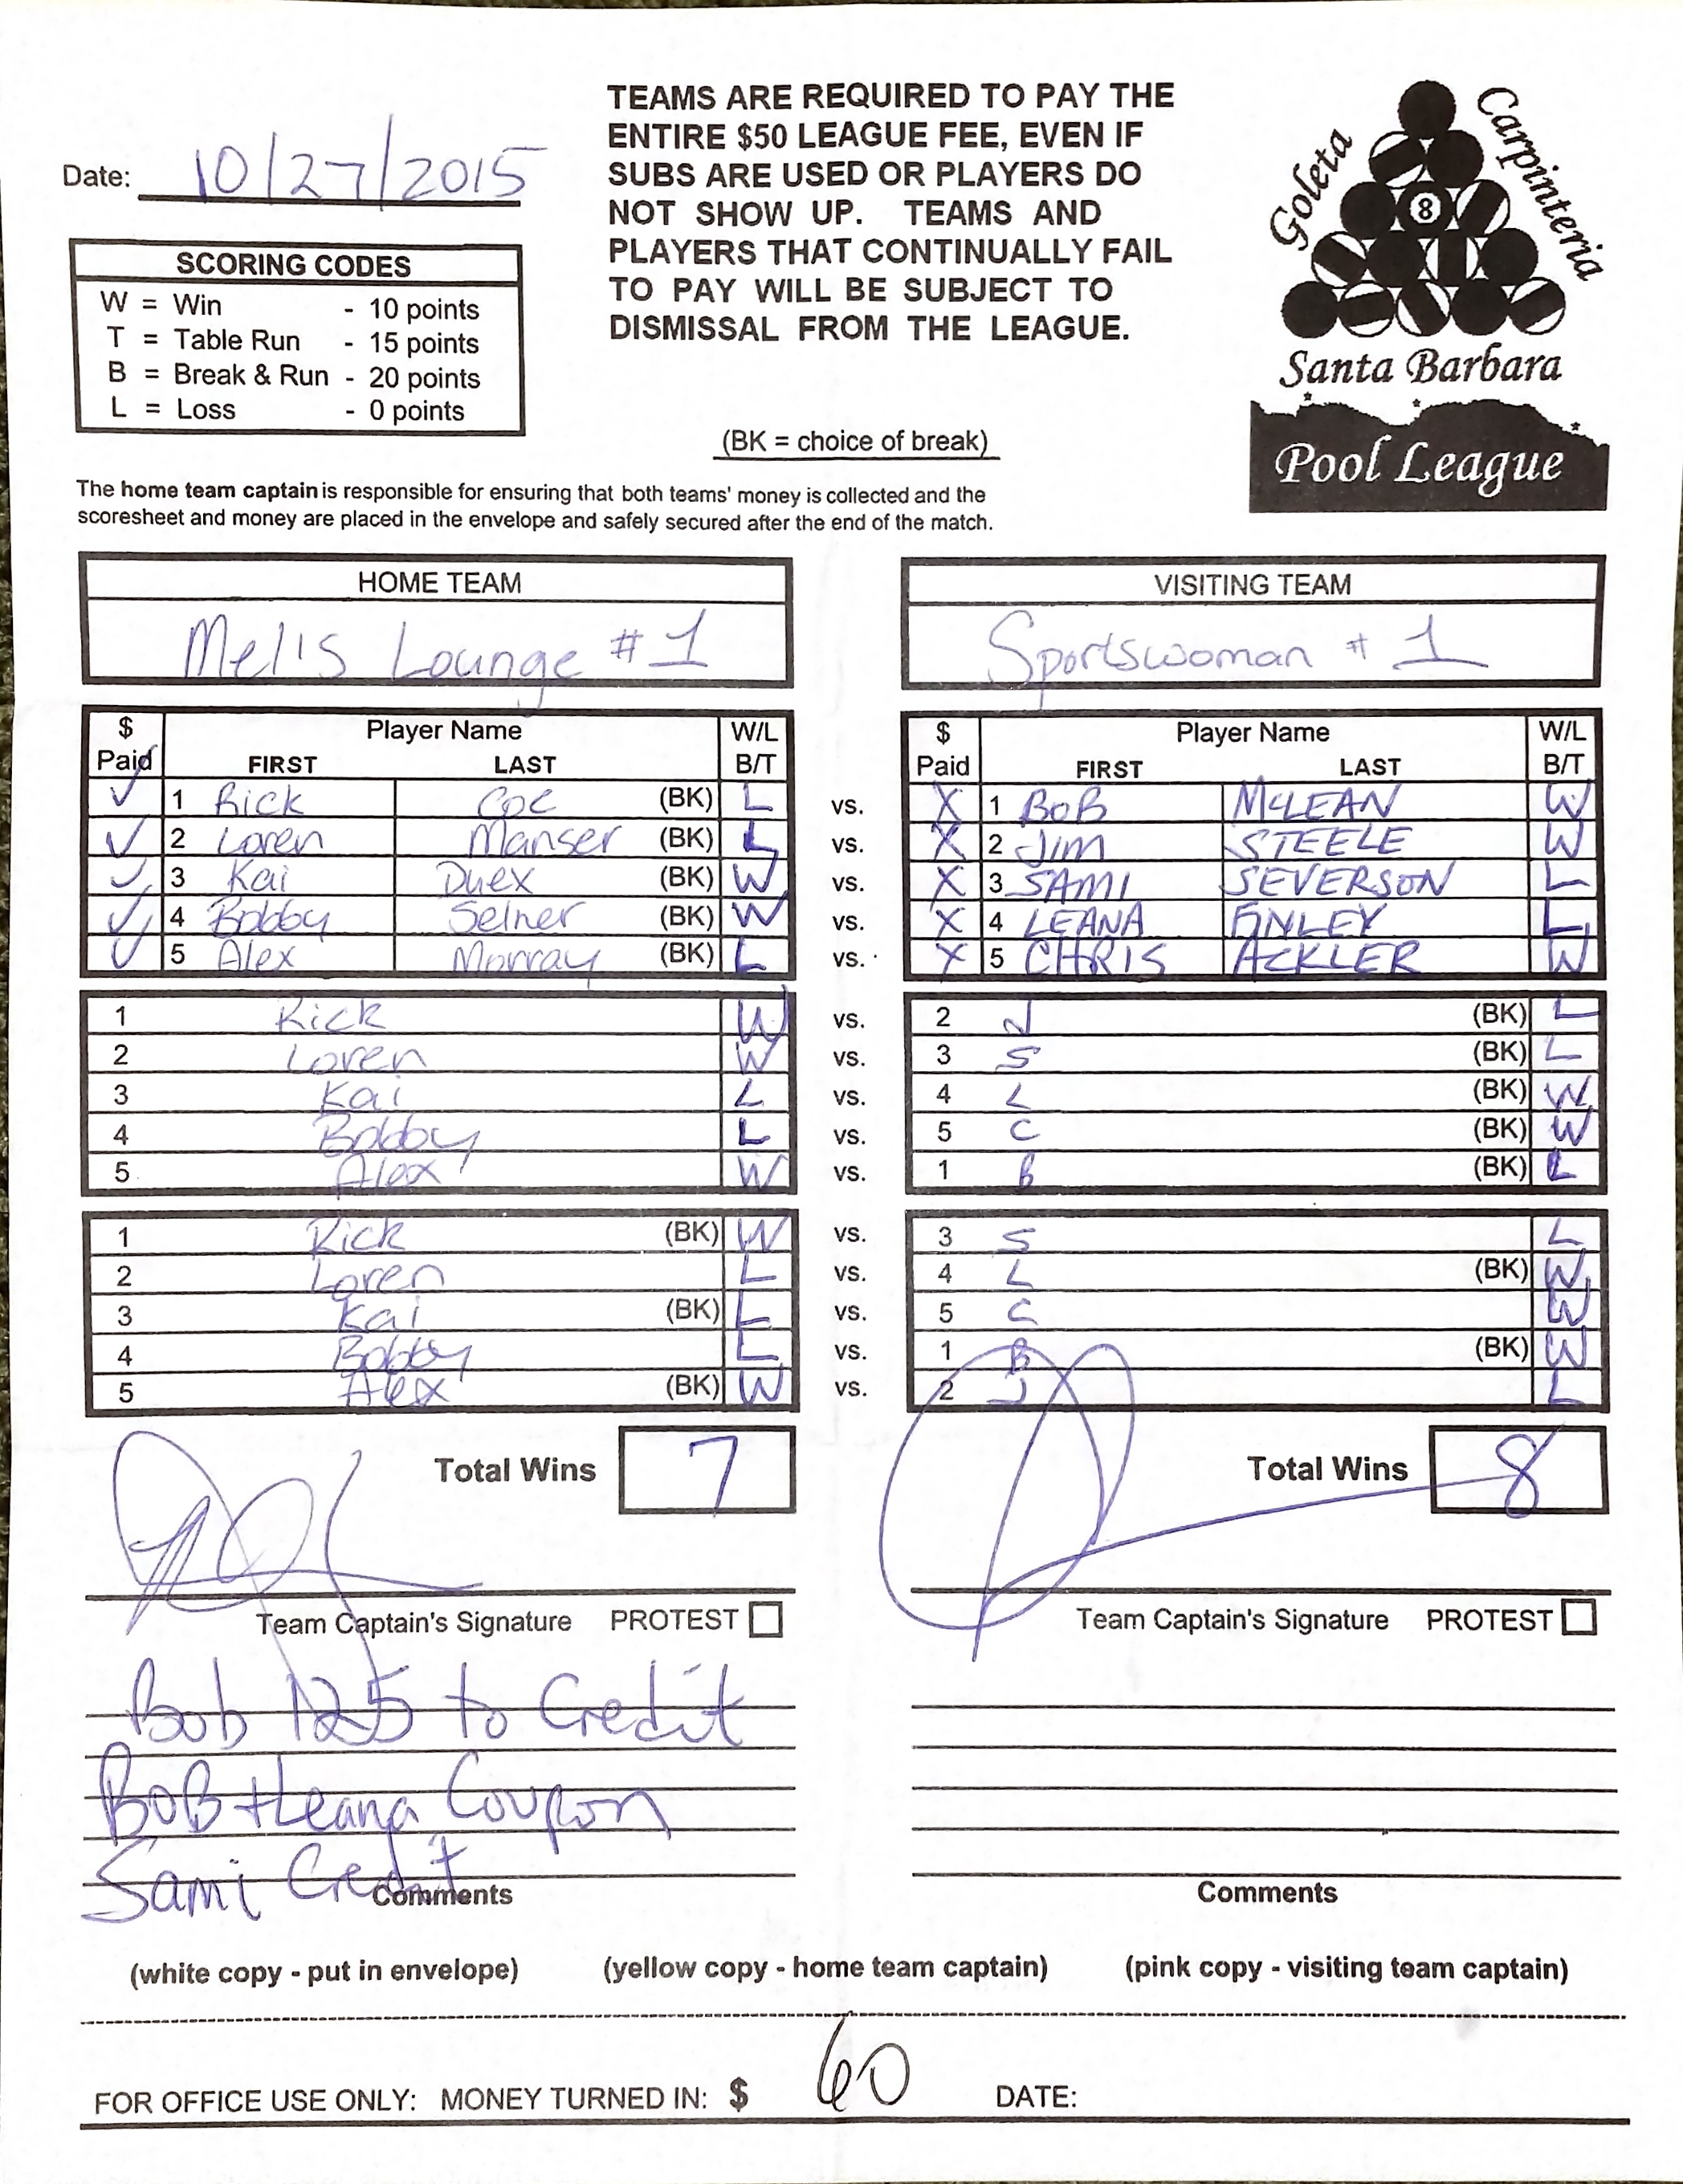 Date: 10/27/2015
TEAMS ARE REQUIRED TO PAY THE
ENTIRE $50 LEAGUE FEE, EVEN IF
SUBS ARE USED OR PLAYERS DO
NOT SHOW UP. TEAMS AND
PLAYERS THAT CONTINUALLY FAIL
TO PAY WILL BE SUBJECT TO
DISMISSAL FROM THE LEAGUE.
(BK = choice of break)
Goleta
Carpinteria
8
Santa Barbara
Pool League
SCORING CODES
W = Win - 10 points
T = Table Run - 15 points
B = Break & Run - 20 points
L = Loss - 0 points
The home team captain is responsible for ensuring that both teams' money is collected and the
scoresheet and money are placed in the envelope and safely secured after the end of the match.
HOME TEAM VISITING TEAM
Mel's Lounge #1 Sportswoman #1
$ Player Name W/L $ Player Name W/L
Paid FIRST LAST B/T Paid FIRST LAST B/T
✓ 1 Rick Coe (BK) L vs. X 1 BOB McLEAN W
✓ 2 Loren Manser (BK) L vs. X 2 JIM STEELE W
✓ 3 Kai Duex (BK) W vs. X 3 SAMI SEVERSON L
✓ 4 Bobby Selner (BK) W vs. X 4 LEANA FINLEY L
✓ 5 Alex Murray (BK) L vs. X 5 CHRIS ACKLER W
1 Rick W vs. 2 J (BK) L
2 Loren W vs. 3 S (BK) L
3 Kai L vs. 4 L (BK) W
4 Bobby L vs. 5 C (BK) W
5 Alex W vs. 1 B (BK) L
1 Rick (BK) W vs. 3 S L
2 Loren L vs. 4 L (BK) W
3 Kai (BK) L vs. 5 C W
4 Bobby L vs. 1 B (BK) W
5 Alex (BK) W vs. 2 J L
Total Wins 7 Total Wins 8
Team Captain's Signature PROTEST Team Captain's Signature PROTEST
Bob 125 to Credit
BOB + Leana Coupon
Sami Credit
Comments Comments
(white copy - put in envelope) (yellow copy - home team captain) (pink copy - visiting team captain)
FOR OFFICE USE ONLY: MONEY TURNED IN: $ 60 DATE: